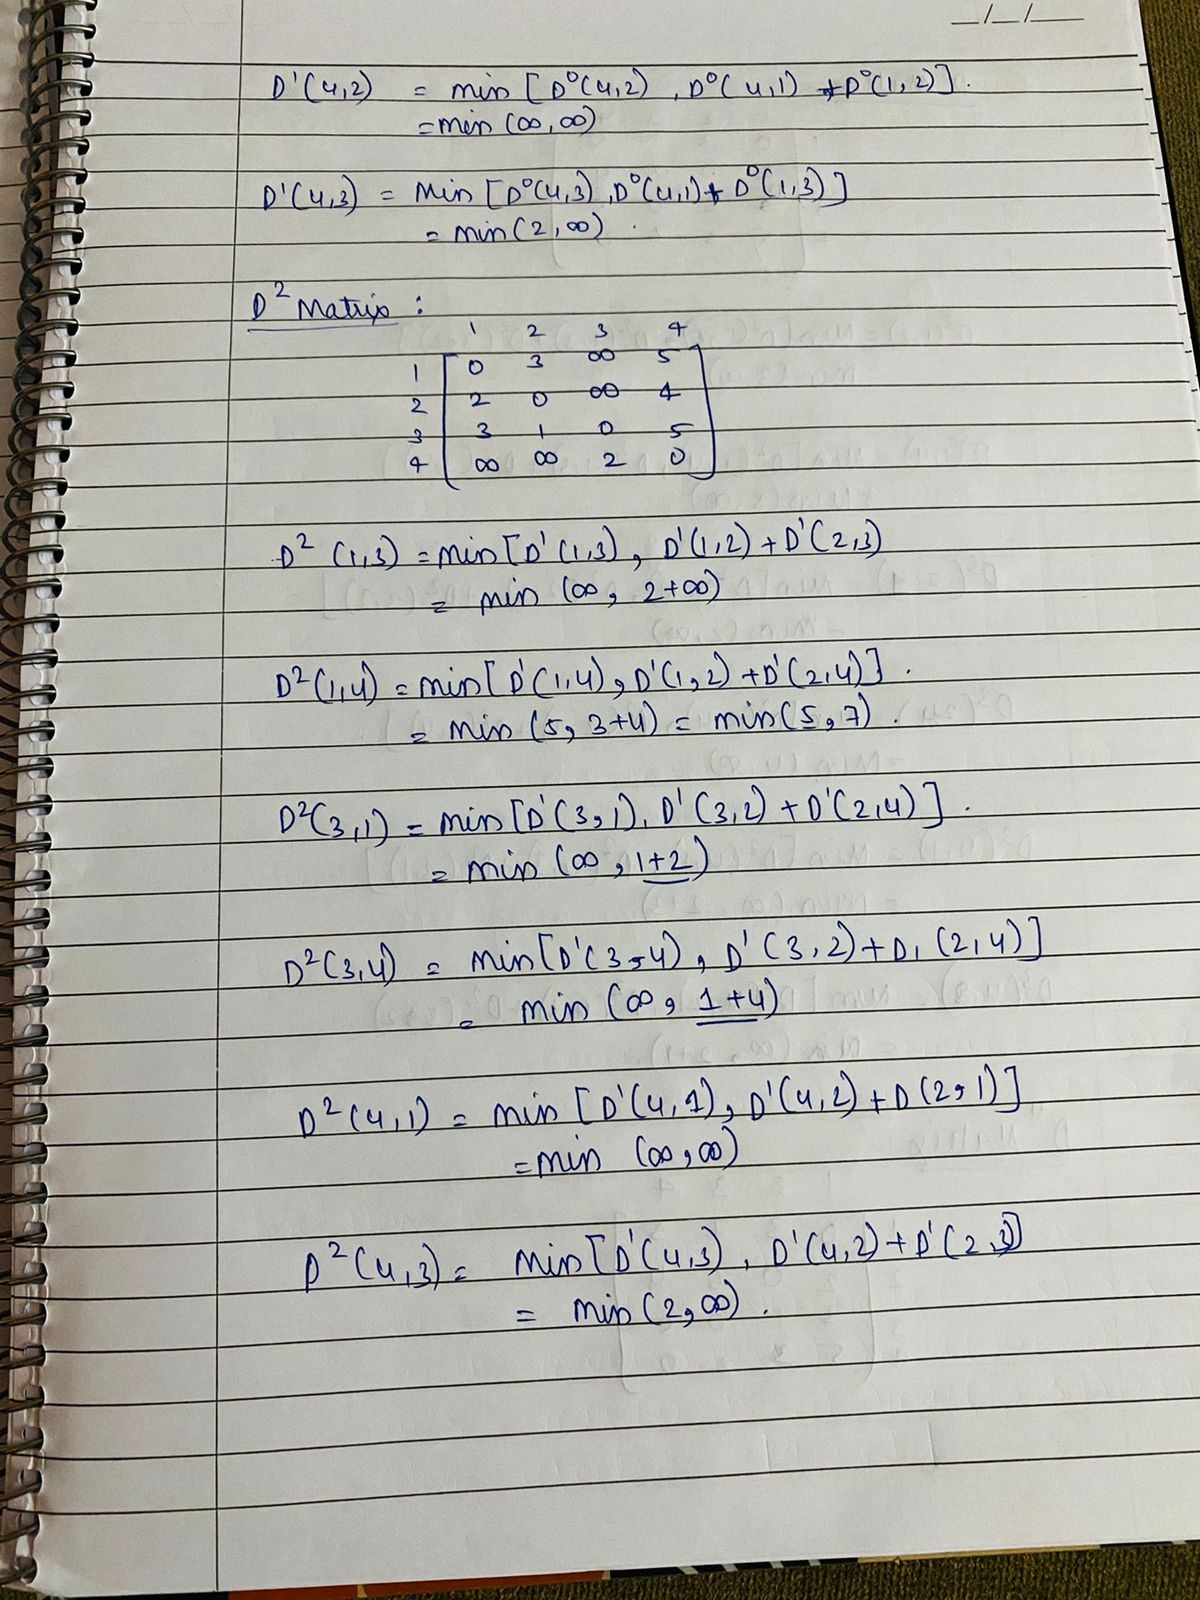 _/_/__
D'(4,2) = min [D⁰(4,2), D⁰(4,1) + D⁰(1,2)].
= min (∞,∞)
D'(4,3) = Min [D⁰(4,3), D⁰(4,1) + D⁰(1,3)]
= min(2,∞).
D² Matrix :
1 2 3 4
1 0 3 ∞ 5
2 2 0 ∞ 4
3 3 1 0 5
4 ∞ ∞ 2 0
D² (1,3) = min[D'(1,3), D'(1,2) + D'(2,3)
= min (∞, 2+∞)
D²(1,4) = min[D'(1,4), D'(1,2) + D'(2,4)].
= min (5, 3+4) = min(5,7).
D²(3,1) = min[D'(3,1), D'(3,2) + D'(2,4)].
= min (∞, 1+2)
D²(3,4) = min[D'(3,4), D'(3,2) + D₁(2,4)]
= min (∞, 1+4)
D²(4,1) = min [D'(4,1), D'(4,2) + D(2,1)]
= min (∞,∞)
D²(4,3) = min[D'(4,3), D'(4,2) + D'(2,3)]
= min(2,∞).